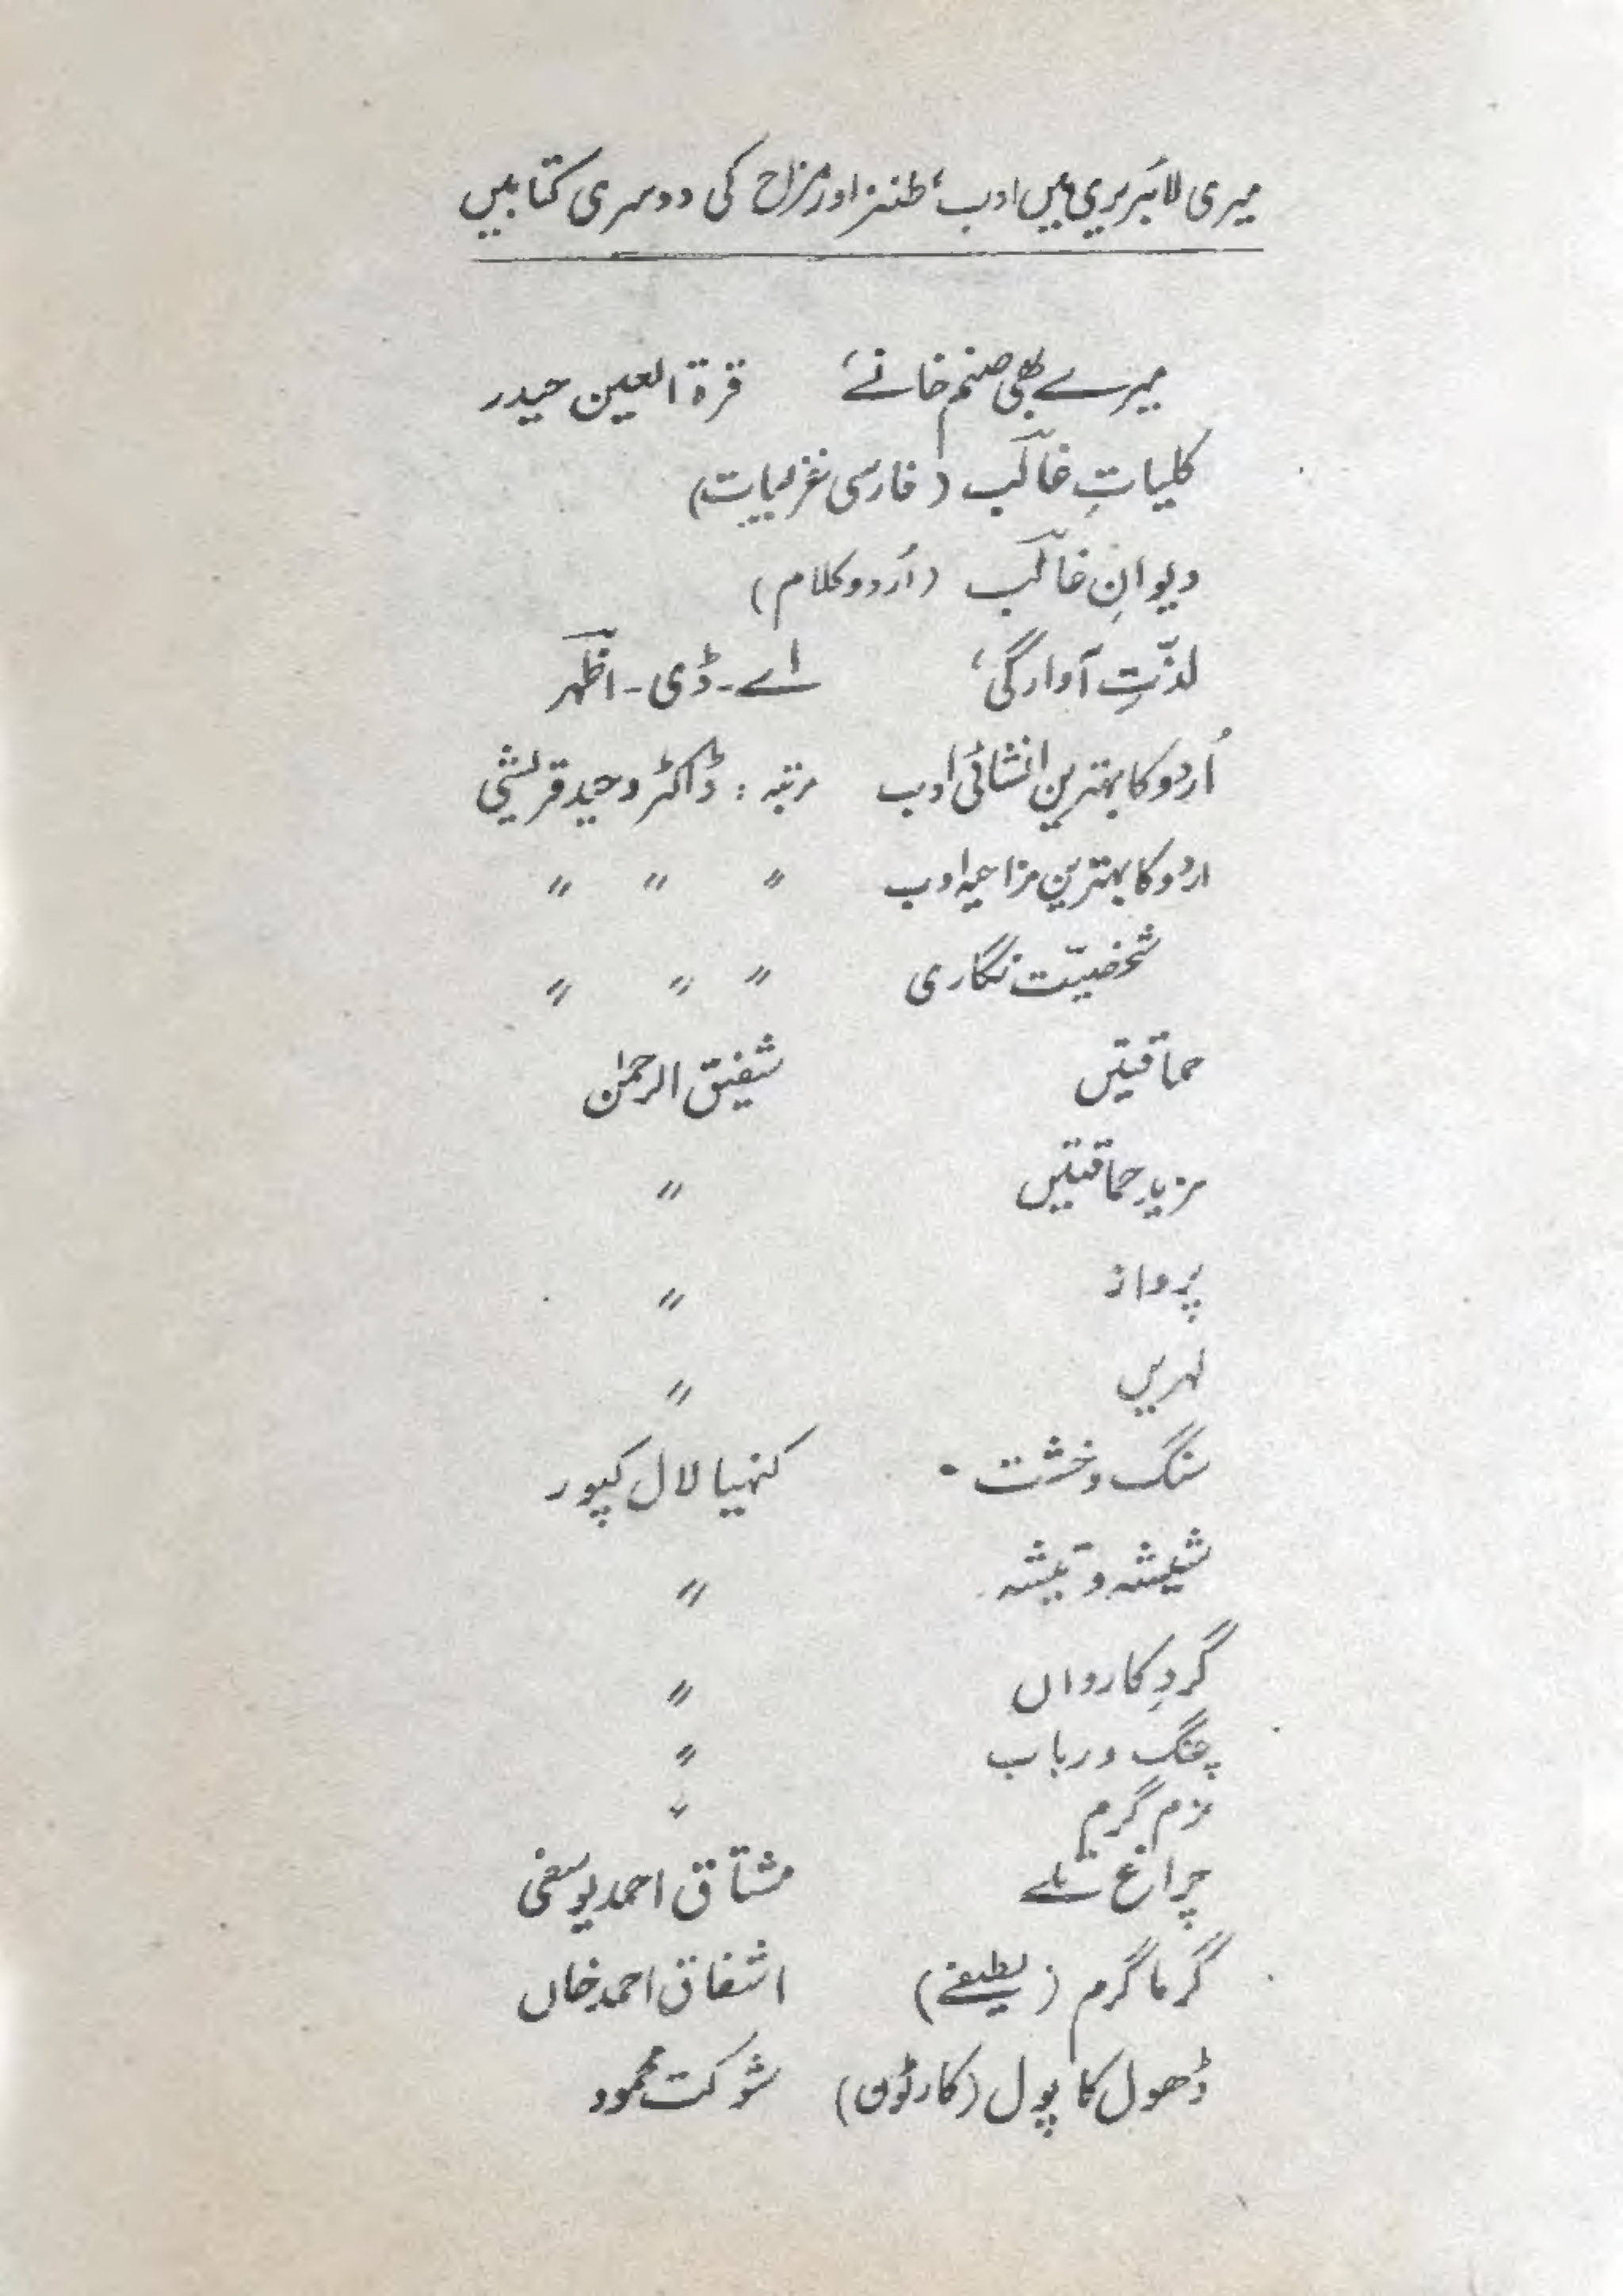 میری لائبریری میں ادب، طنز اور مزاح کی دوسری کتابیں
میرے بھی صنم خانے، قرۃ العین حیدر
کلیاتِ غالب (فارسی غزلیات)
دیوانِ غالب (اُردو کلام)
لذّتِ آوارگی، اے۔ ڈی۔ اظہر
اُردو کا بہترین انشائی ادب مرتبہ : ڈاکٹر وحید قریشی
اردو کا بہترین مزاحیہ ادب " " "
شخصیّت نگاری " " "
حماقتیں شفیق الرحمٰن
مزید حماقتیں "
پرواز "
لہریں "
سنگ و خشت ۔ کنہیا لال کپور
شیشہ و تیشہ "
گردِ کارواں "
چنگ و رباب "
نرم گرم "
چراغ تلے مشتاق احمد یوسفی
گرما گرم (لطیفے) اشفاق احمد خاں
ڈھول کا پول (کارٹون) شوکت محمود